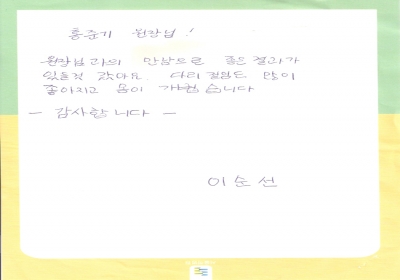 홍준기 원장님!
원장님과의 만남으로 좋은 결과가
있는것 같아요. 다리 절임도 많이
좋아지고 몸이 가볍습니다
- 감사합니다 -
이순선